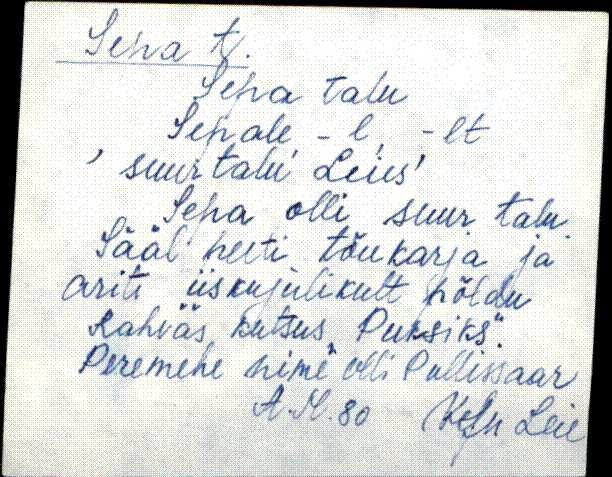 Sepa t.
Sepa talu
Sepale, -l, -lt
'suur talu Leies'
Sepa olli suur talu.
Sääl peeti tõukarja ja
ariti iiskujulikult põldu
Rahvas kutsus "Puksiks".
Peremehe nimi olli Pullissaar
A.M. 80 Leie